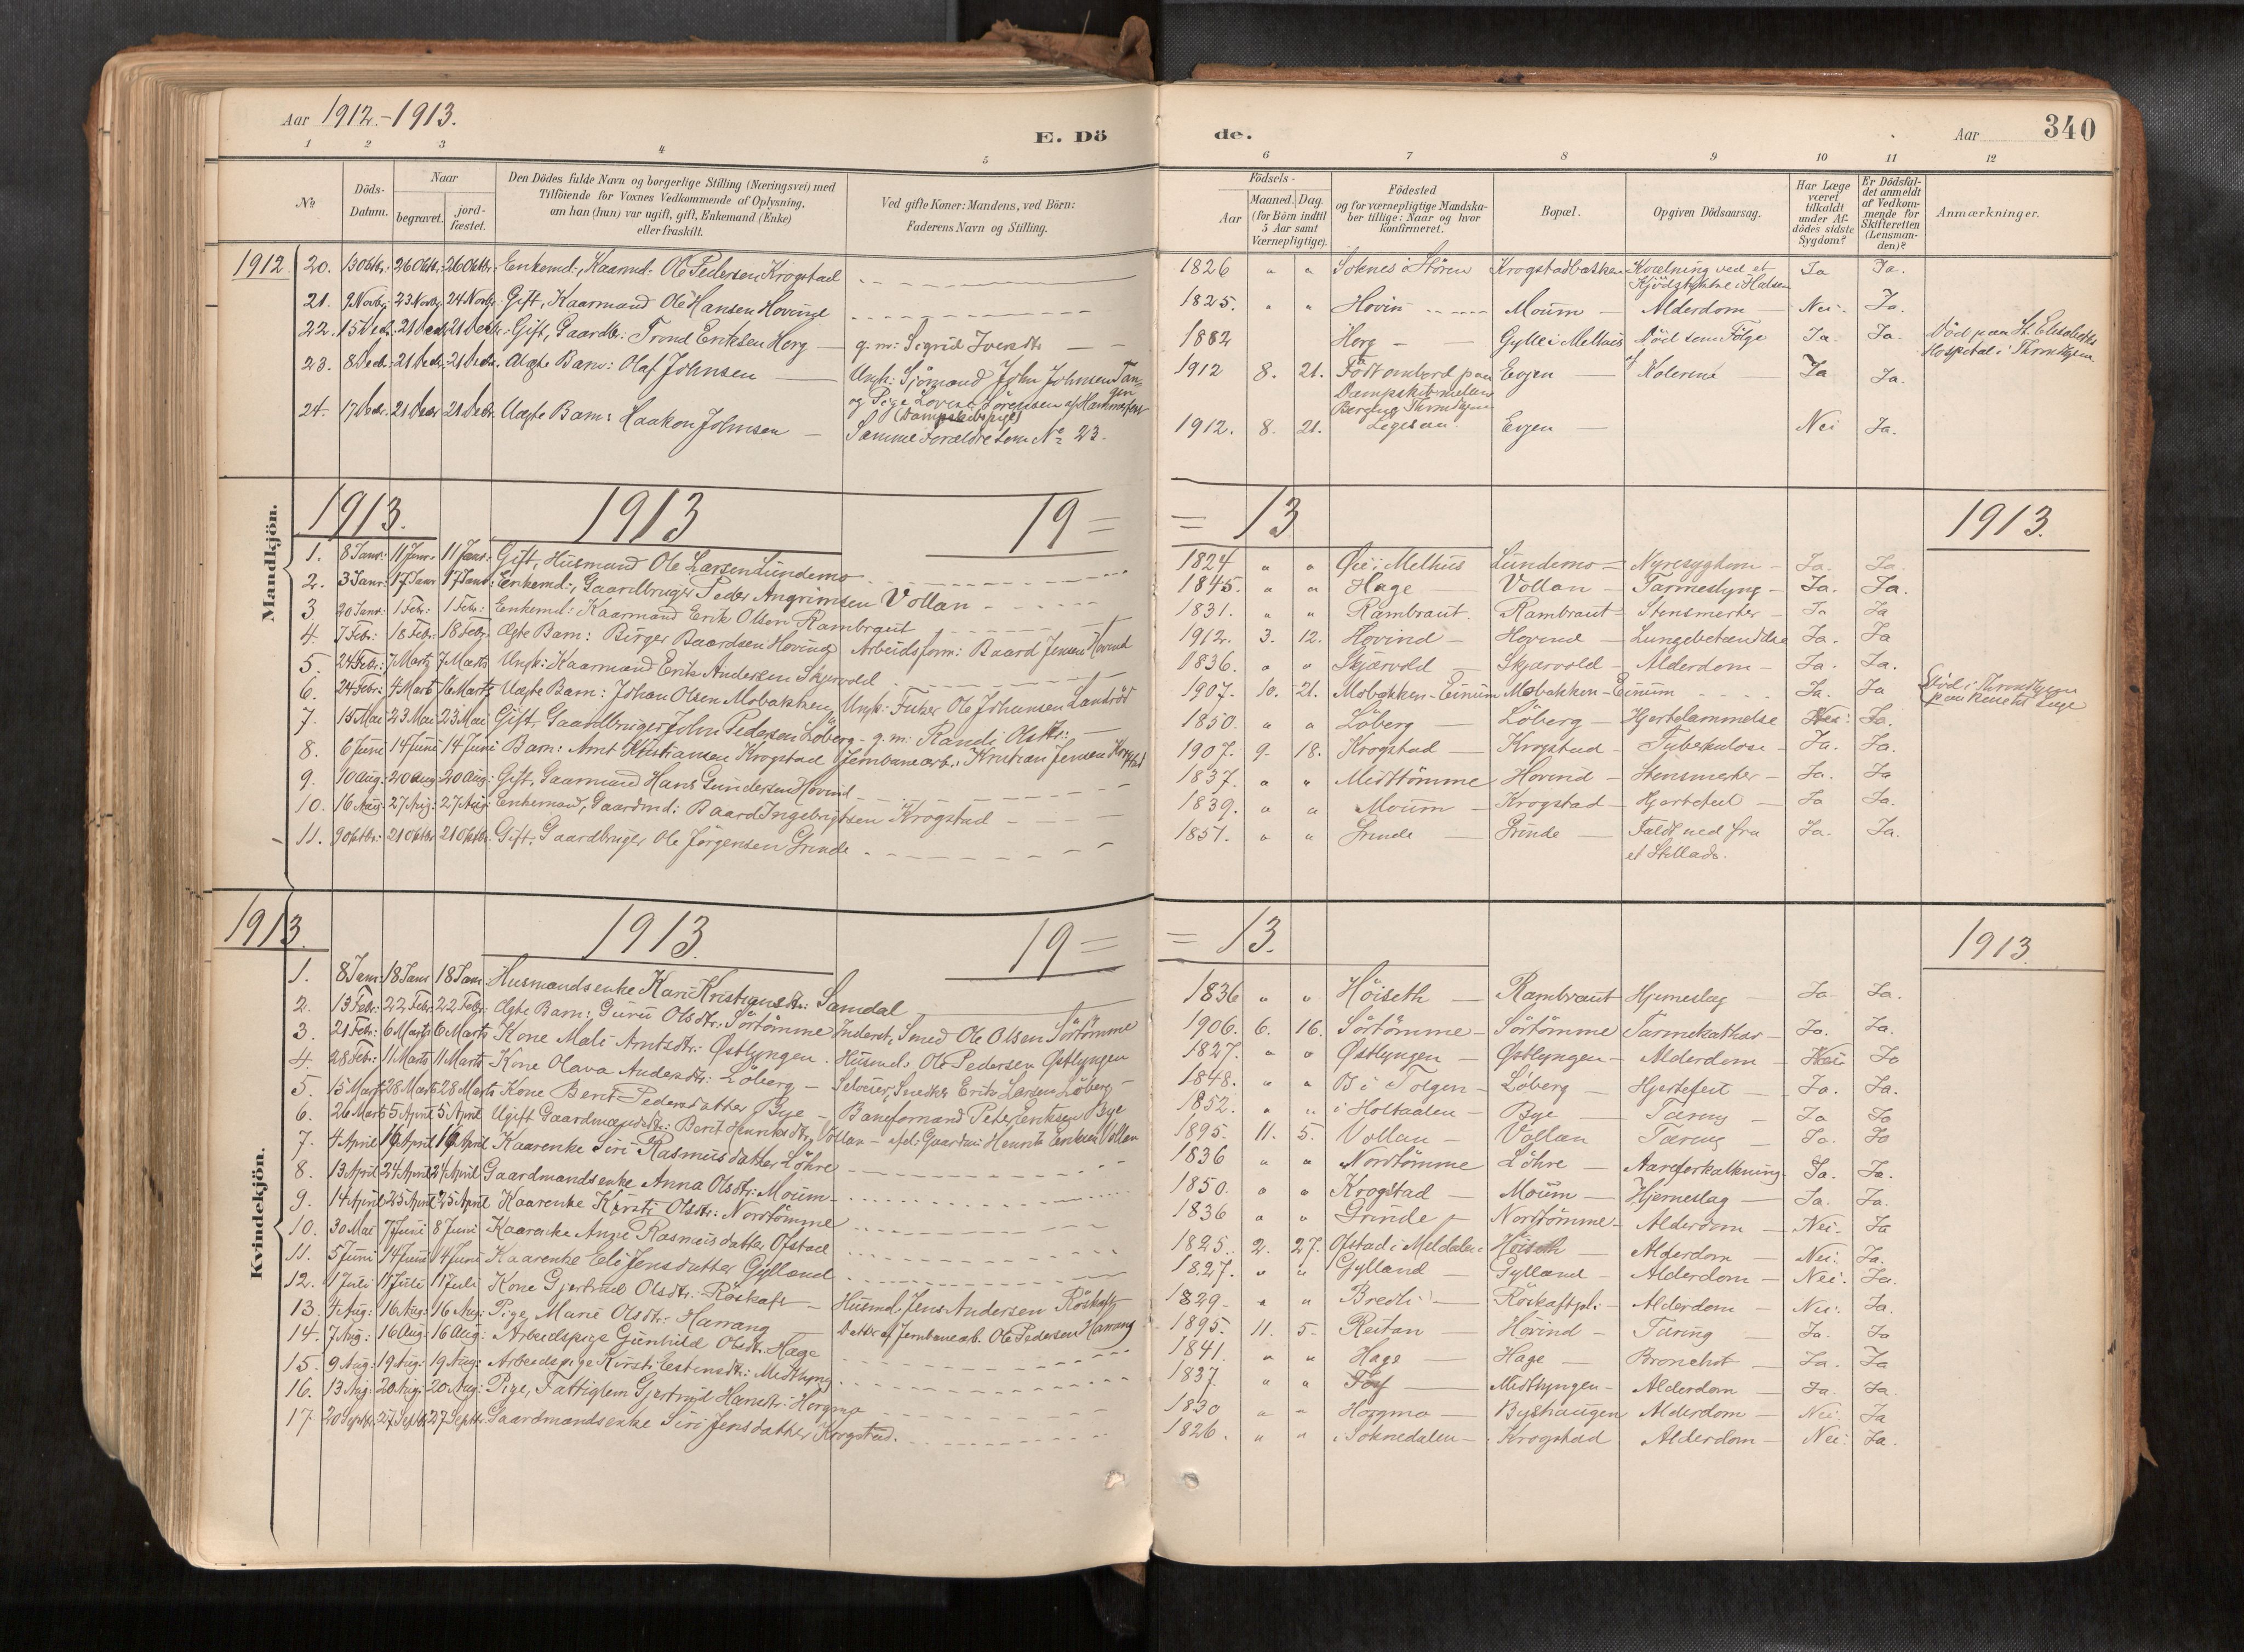 Aar 1912.-1913.
E. Dö
de.
Aar
340
1 2 3 4 5 6 7 8 9 10 11 12
No
Döds-
Datum.
Naar
begravet.
jord-
fæstet.
Den Dödes fulde Navn og borgerlige Stilling (Næringsvei) med
Tilföiende for Voxnes Vedkommende af Oplysning,
om han (hun) var ugift, gift, Enkemand (Enke)
eller fraskilt.
Ved gifte Koner: Mandens, ved Börn:
Faderens Navn og Stilling.
Födsels-
Aar
Maaned. Dag.
(for Börn indtil
5 Aar samt
Værnepligtige).
Födested
og for værnepligtige Mandska-
ber tillige: Naar og hvor
konfirmeret.
Bopæl.
Opgiven Dödsaarsag.
Har Læge
været
tilkaldt
under Af-
dödes sidste
Sygdom?
Er Dödsfal-
det anmeldt
af Vedkom-
mende for
Skifteretten
(Lensman-
den)?
Anmærkninger.
1912. 20. 13 Oktbr: 26 Oktbr: 26 Oktbr: Enkemd:, Kaarmd: Ole Pedersen Krogstad 1826 " " Soknes i Stören Krogstadbakken Kvælning ved et Ja Ja.
Kjödstykke i Halsen
21. 9 Novbr: 23 Novbr: 24 Novbr: Gift, Kaarmand Ole Hansen Hovind 1825. " " Hovin Moum Alderdom Nei. Ja.
22. 15 Decb: 21 Decb: 21 Decb: Gift, Gaardbr: Trond Eriksen Horg g. m: Sigrid Iversdtr 1882 Horg Gylle i Melhus Död som Fölge Ja. Ja. Död paa St. Elisabeths
Hospital i Throndhjem
23. 8 Decb: 21 Decb: 21 Decb: Uægte Barn: Olaf Johnsen Ungk: Sjömand John Johnsen Tan- 1912 8. 21. Födt ombord paa Evjen Kolerine Ja Ja.
gen
og Pige Lovise Sörensen af Hammerfest Dampskib mellem
(Dampskibspige) Bergen og Throndhjem
24. 17 Decb. 21 Decb 21 Decb. Uægte Barn: Haakon Johnsen Samme Forældre som No 23. 1912. 8. 21. Ligesaa Evjen Nei Ja.
Mandkjön.
1913. 1913 19= =13 1913.
1. 8 Janr: 11 Janr. 11 Janr: Gift, Husmand Ole Larsen Lundemo 1824 " " Öie i Melhus Lundemo Nyresygdom Ja. Ja.
2. 3 Janr: 17 Janr 17 Janr: Enkemd:, Gaardbruger Peder Angrimsen Vollan 1845. " " Hage Vollan Tarmeslyng Ja. Ja.
3. 20 Janr: 1 Febr: 1 Febr: Enkemd: Kaarmand Erik Olsen Rambraut 1831. " " Rambraut. Rambraut Stensmerter Ja Ja
4. 7 Febr: 18 Febr: 18 Febr: Ægte Barn: Birger Baardsen Hovind Arbeidsform: Baard Jensen Hovind 1912. 3. 12. Hovind Hovind Lungebetændelse Ja. Ja
5. 24 Febr: 7 Marts 7 Marts Ungk: Kaarmand Erik Andersen Skjervold 1836. " " Skjærvold Skjærvold Alderdom Ja. Ja.
6. 24 Febr: 4 Marts 16 Marts Uægte Barn: Johan Olsen Mobakken Ungk: Fisker Ole Johansen Landröd 1907. 10. 21. Mobakken-Einum Mobakken-Einum Ja. Ja Död i Throndhjem
7. 15 Mai 23 Mai 23 Mai Gift, Gaardbruger John Pedersen Löberg g. m: Randi Olsdtr: 1850. " " Löberg Löberg Hjertelammelse Nei: Ja.
8. 6 Juni 14 Juni 14 Juni Barn: Arnt Kristiansen Krogstad Jernbanearb.: Kristian Jensen Krogstad 1907. 9. 18. Krogstad Krogstad Tuberkulose Ja. Ja.
9. 10 Aug: 20 Aug 20 Aug: Gift, Gaarmand Hans Gundersen Hovind 1837. " " Midttömme Hovind Stensmerter Ja. Ja
10. 16 Aug: 27 Aug: 27 Aug: Enkemand, Gaardmd: Baard Ingebrigtsen Krogstad 1839. " " Moum Krogstad Hjertefeil Ja Ja.
11. 9 Oktbr: 21 Oktbr 21 Oktbr: Gift, Gaardbruger Ole Jörgensen Grinde 1857. " " Grinde Grinde Faldt ned fra Ja. Ja.
et Stillads.
Kvindekjön.
1913. 1913. 19= =13. 1913.
1. 8 Janr: 18 Janr 18 Janr Husmandsenke Kari Kristiansdtr: Samdal 1836 " " Höiseth Rambraut Hjerneslag Ja Ja.
2. 13 Febr: 22 Febr 22 Febr: Ægte Barn: Guru Olsdtr: Sörtömme Inderst, Smed Ole Olsen Sörtömme 1906. 6. 16. Sörtömme Sörtömme Tarmekathar Ja. Ja.
3. 21 Febr: 6 Marts 6 Marts Kone Mali Arntsdtr: Östlyngen Husmd: Ole Pedersen Östlyngen 1827. " " Östlyngen Östlyngen Alderdom Nei Ja
4. 28 Febr: 11 Marts 11 Marts Kone Olava Andersdtr: Löberg Selveier, Snedker Erik Larsen Löberg 1848. " " Os i Tolgen Löberg Hjertefeil Ja. Ja.
5. 15 Marts 28 Marts 28 Marts Kone Berit Pedersdatter Bye Baneformand Peder Eriksen Bye 1852. " " i Holtaalen Bye Tæring Ja Ja
6. 26 Marts 5 April 5 April Ugift Gaardmandsdtr: Berit Henriksdtr: Vollan afd: Gaardmd: Henrik Eriksen Vollan 1895. 11. 5. Vollan Vollan Tæring Ja. Ja
7. 4 April 16 April 16 April Kaarenke Siri Rasmusdatter Löhre 1836 " " Nordtömme Löhre Aareforkalkning Ja. Ja.
8. 13 April 24 April 24 April Gaardmandsenke Anna Olsdtr: Moum 1850. " " Krogstad Moum Hjerneslag Ja. Ja.
9. 14 April 25 April 25 April Kaarenke Kirsti Olsdtr: Nordtömme 1836 " " Grinde Nordtömme Alderdom Nei. Ja
10. 30 Mai 7 Juni 8 Juni Kaarenke Anne Rasmusdatter Ofstad 1825. 2. 27. Ofstad i Meldalen Höiseth Alderdom Nei: Ja.
11. 5 Juni 14 Juni 14 Juni Kaarenke Eli Jensdatter Gylland 1827. " " Gylland Gylland Alderdom Nei. Ja.
12. 1 Juli 11 Juli 11 Juli Kone Gjertrud Olsdtr: Röskaft Husmd. Jens Andersen Röskaft 1829 " " Bredli Röskaftpl: Alderdom Nei: Ja.
13. 4 Aug: 16 Aug: 16 Aug: Pige Marie Olsdtr: Harrang Datter af Jernbanearb. Ole Pedersen Harrang 1895. 11. 5. Reitan Hovind Tæring Ja. Ja
14. 7 Aug: 16 Aug: 16 Aug: Arbeidspige Gunhild Olsdtr. Hage 1841. " " Hage Hage Bronchit Ja. Ja
15. 9 Aug: 19 Aug: 19 Aug: Arbeidspige Kirsti Estensdtr: Midtlyng 1837. " " Midtlyngen Alderdom Ja. Ja.
16. 13 Aug: 20 Aug: 20 Aug: Pige, Fattiglem Gjertrud Hansdtr: Horgmo 1830 " " Horgmo Byshaugen Alderdom Nei: Ja
17. 20 Septbr: 27 Septbr 27 Septbr: Gaardmandsenke Siri Jensdatter Krogstad. 1826. " " i Soknedalen Krogstad Alderdom Nei: Ja.